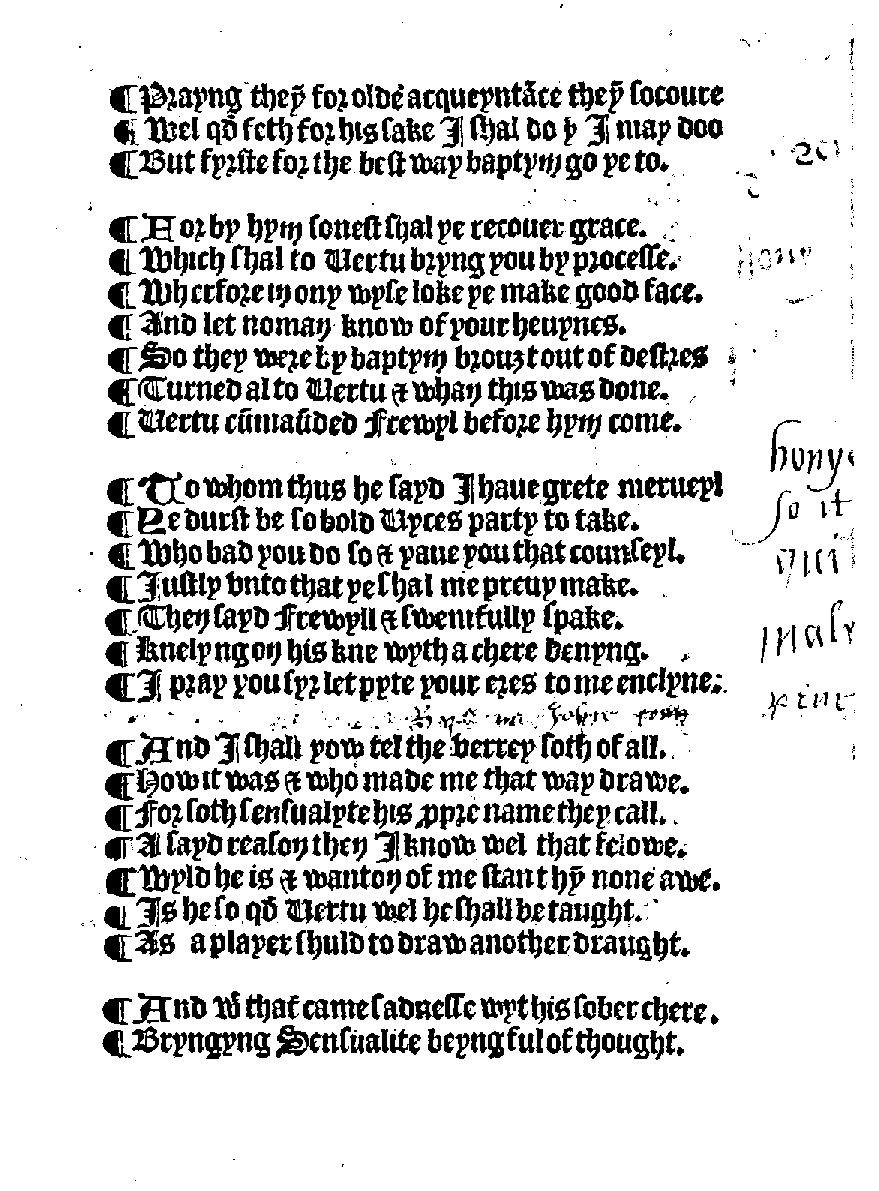 ¶ Prayng theȳ for olde acqueyntāce theȳ socoure
¶ Wel qđ feth for his sake I shal do þ I may doo
¶ But fyrste for the best way baptym go ye to.
¶ For by hym sonest shal ye recouer grace.
¶ Which shal to Uertu bryng you by processe.
¶ Wherfore in ony wyse loke ye make good face.
¶ And let noman know of your heuynes.
¶ So they were by baptym brouȝt out of destres
¶ Turned al to Uertu & whan this was done.
¶ Uertu cūmaūded Frewyl before hym come.
¶ To whom thus he sayd I haue grete merueyl
¶ Ye durst be so bold Uyces party to take.
¶ Who bad you do so & yaue you that counseyl.
¶ Justly vnto that ye shal me preuy make.
¶ Then sayd Frewyll & swemfully spake.
¶ Knelyng on his kne wyth a chere benyng.
¶ I pray you syr let pyte your eres to me enclyne.
¶ And I shall yow tel the verrey soth of all.
¶ How it was & who made me that way drawe.
¶ For soth sensualyte his ꝓpre name they call.
¶ A sayd reason then I know wel that felowe.
¶ Wyld he is & wanton of me stant hȳ none awe.
¶ Is he so qđ Uertu wel he shall be taught.
¶ As a player shuld to draw another draught.
¶ And wͭ that came sadnesse wyt his sober chere.
¶ Bryngyng Sensualite beyng ful of thought.
hony
hony
so it